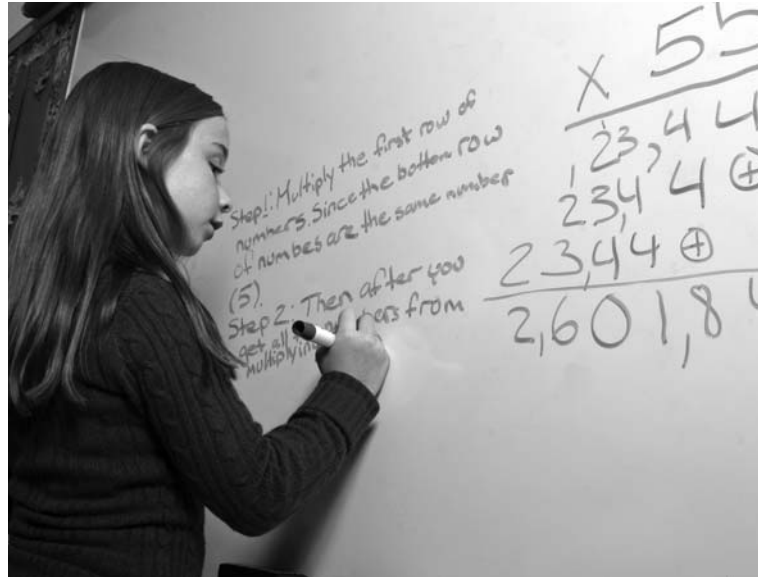 Step 1: Multiply the first row of
numbers. Since the bottom row
of numbes are the same number
(5).
Step 2: Then after you
get all from
multiplying
x 55
123,44
23,44 ⊕
23,44 ⊕
2,601,84